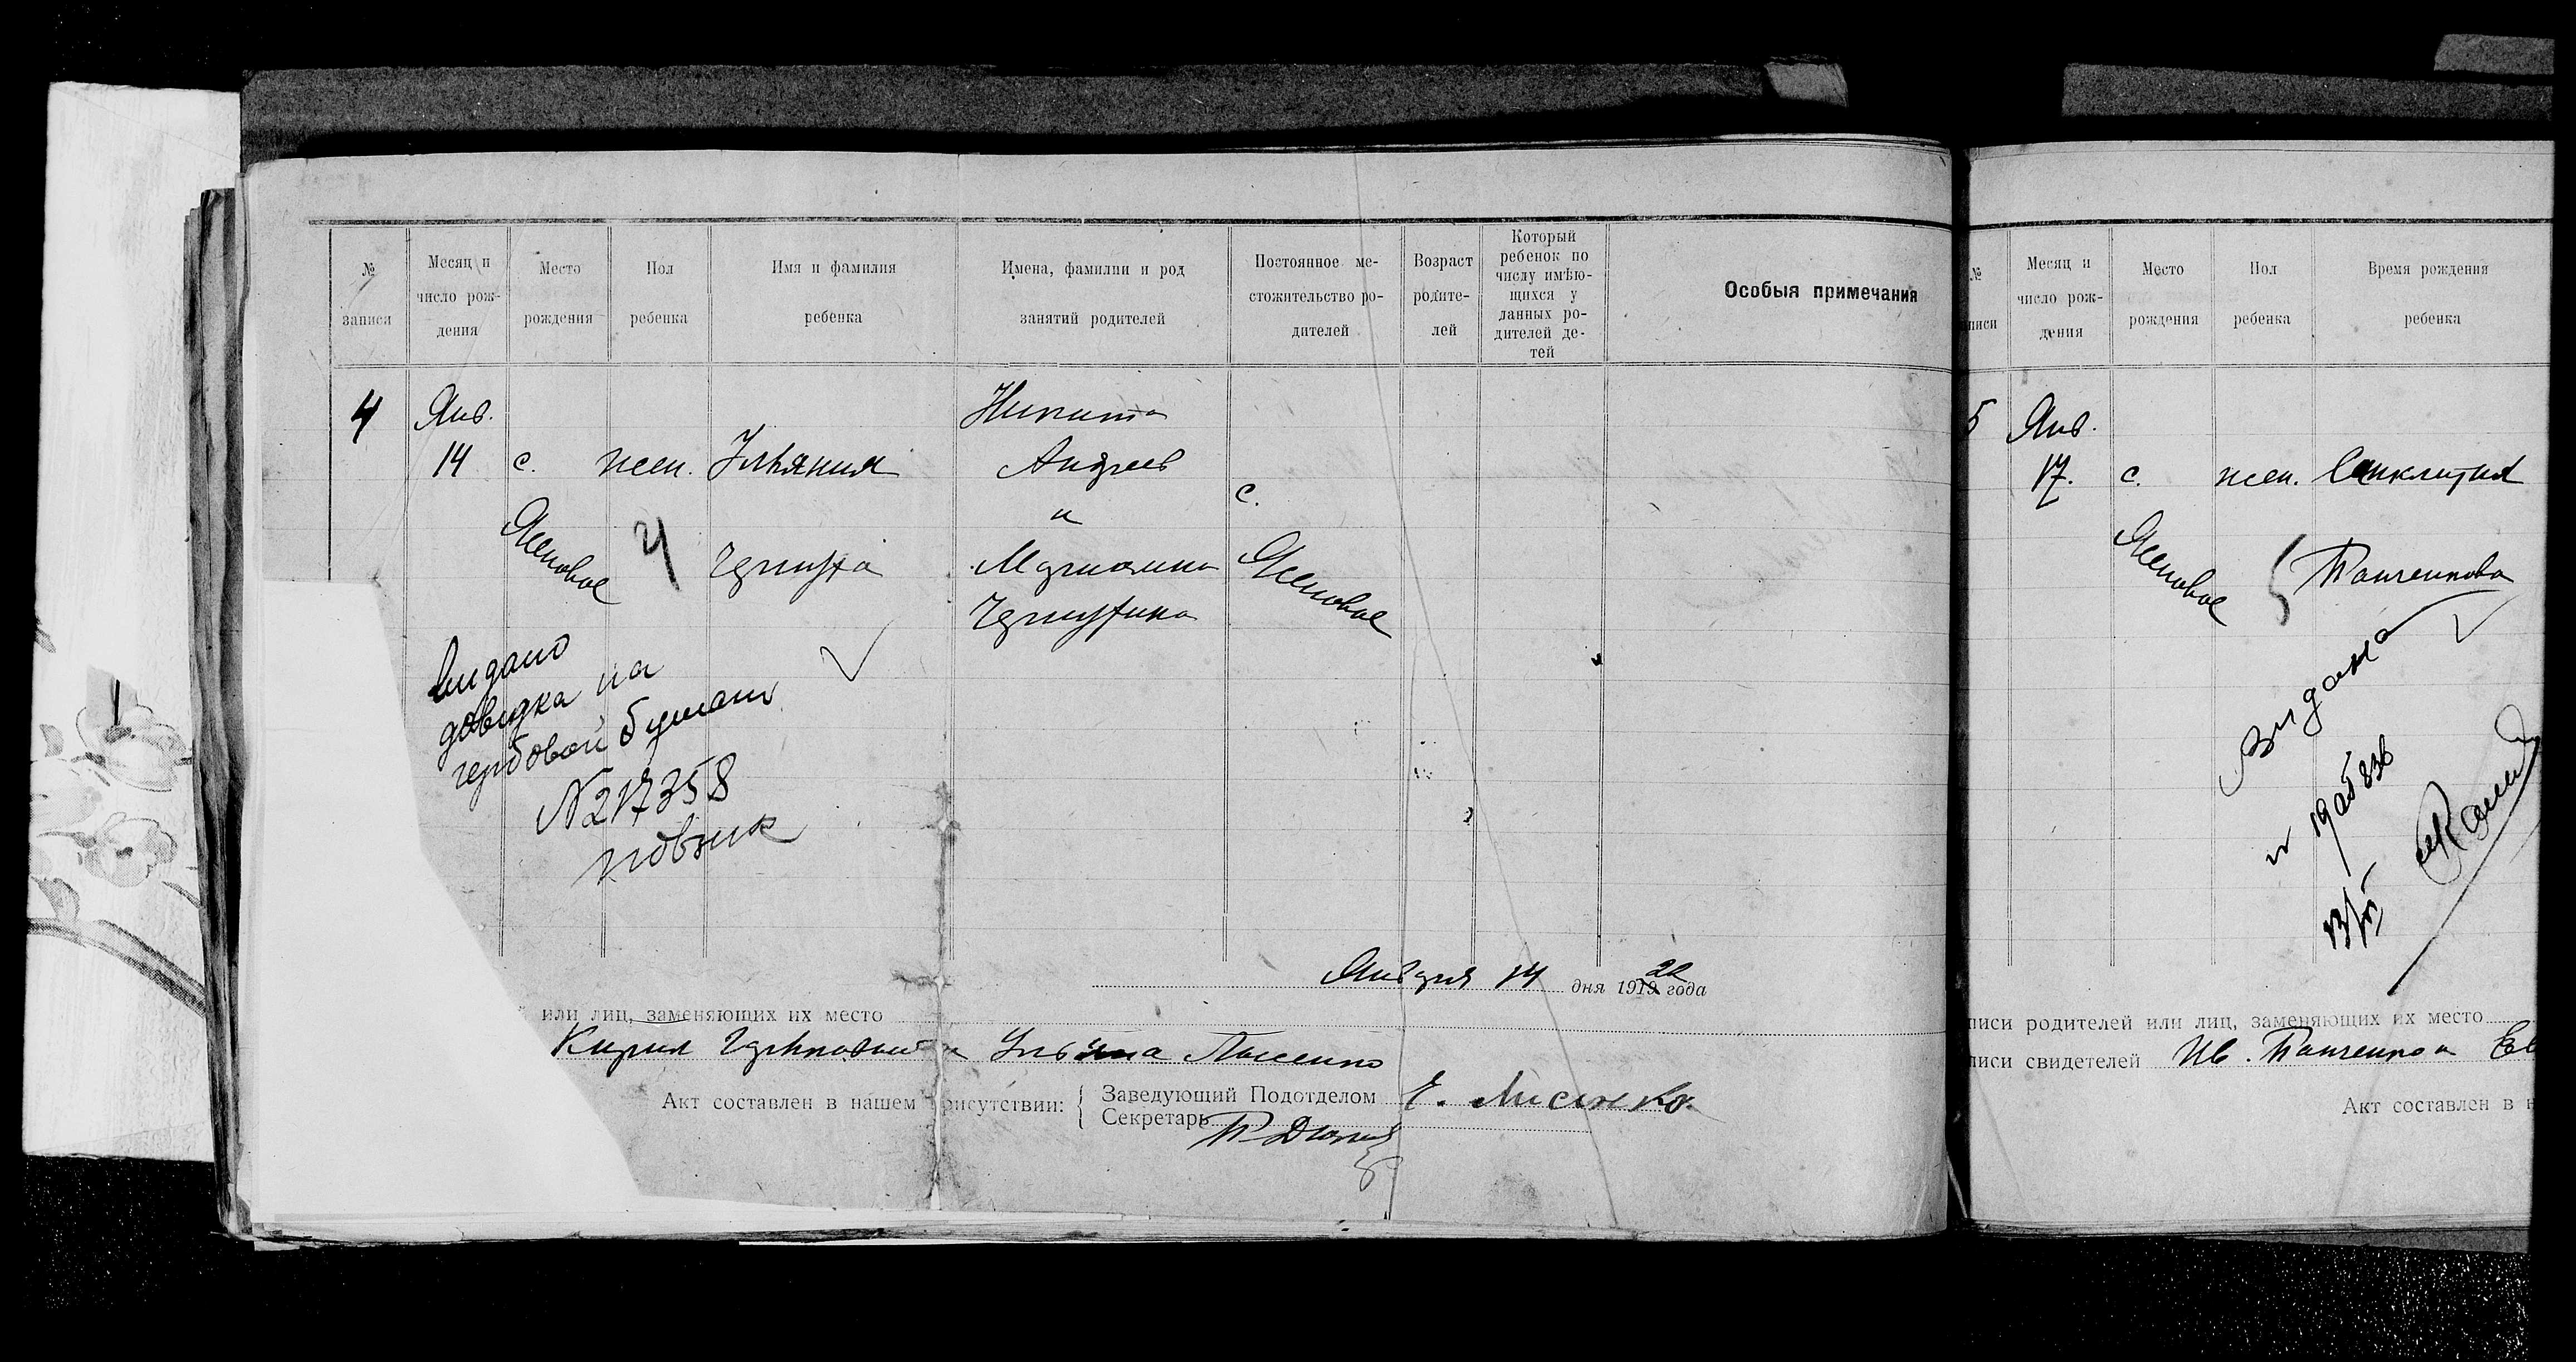 № записи
Месяц и число рож-дения
Место рождения
Пол ребенка
Имя и фамилия ребенка
Имена, фамилии и род занятий родителей
Постоянное ме-стожительство ро-дителей
Возраст родите-лей
Который ребенок по числу имѣю-щихся у данных ро-дителей де-тей
Особыя примечания
4
Янв.
14
с.
Ясеновое
жен.
4
Ульяния
Никита
Андреев
и
Марианна
с.
Ясеновое
видано
довидка на
гербовой бумаги
№217358
Января 14 дня 1919 22 года
или лиц, заменяющих их место
Кирил
Ульяна Лысенко
Акт составлен в нашем присутствии:
Заведующий Подотделом Е. Лисенко.
Секретарь
№
писи
Месяц и число рож-дения
Место рождения
Пол ребенка
Время рождения ребенка
5
Янв.
17.
с.
Ясеновое
жен.
5
Панченкова
Видана
писи родителей или лиц, заменяющих их место
писи свидетелей Ив. Панченко и Ев
Акт составлен в н